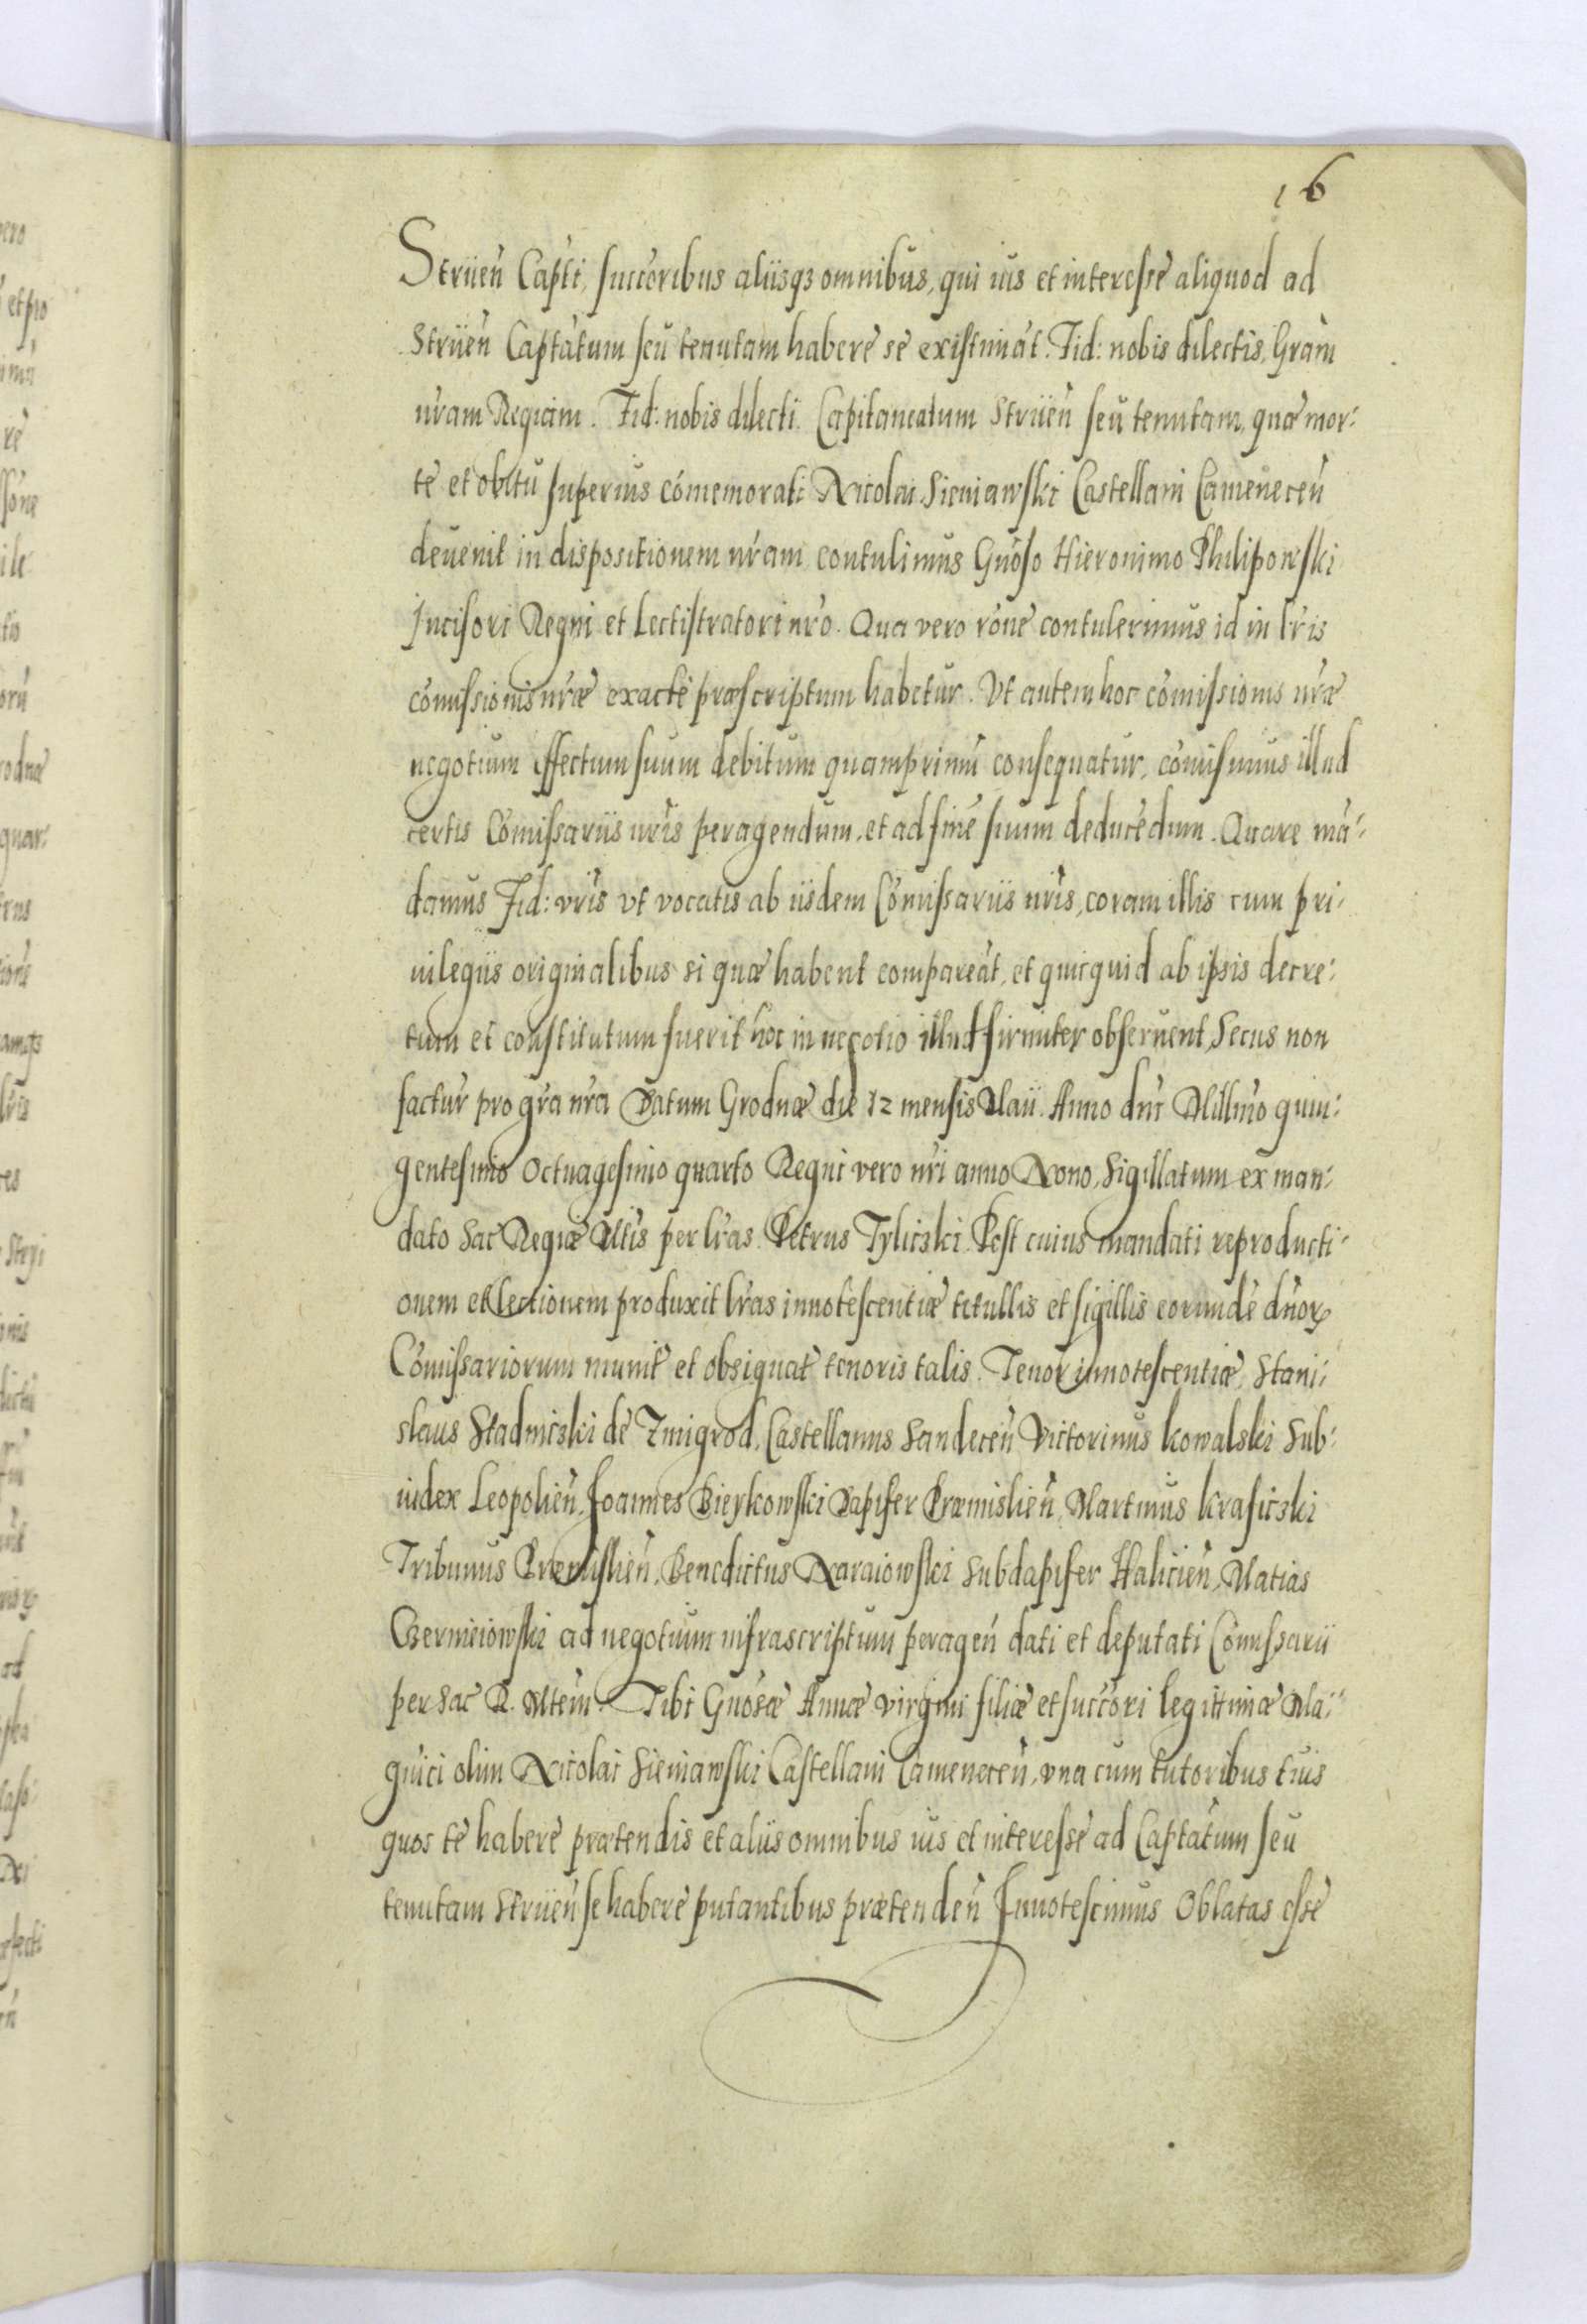 16
Striien̄ Capti, succōribus aliisqꝫ omnibus, qui ius et interesse aliquod ad
Striien̄ Captātum seu tenutam habere se existimāt. Fid: nobis dilectis, Grām
nr̄am Regiam. Fid: nobis dilecti. Capitaneatum Striien̄ seu tenutam, quæ mor-
te et obitu superius cōmemorati Nicolai Sieniawski Castellani Camenecen̄
deuenit in dispositionem nr̄am contulimus Gnōso Hieronimo Philipowski
Incisori Regni et Lectistratori nr̄o. Qua vero rōne contulerimus id in lr̄is
cōmissionis nr̄æ exacte præscriptum habetur. Vt autem hoc cōmissionis nr̄æ
negotium effectum suum debitum quamprimū consequatur, cōmisimus illud
certis Cōmissariis nr̄is peragendum, et ad finē suum deducēdum. Quare mā-
damus Fid: vr̄is vt vocatis ab iisdem Cōmissariis nr̄is, coram illis cum pri-
uilegiis originalibus si quæ habent compareāt, et quicquid ab ipsis decre-
tum et constitutum fuerit hoc in negotio illud firmiter obseruent, Secus non
factur̄ pro gr̄a nr̄a Datum Grodnæ die 12 mensis Maii. Anno dn̄i Mill̄mo quin-
gentesimo Octuagesimo quarto Regni vero nr̄i anno Nono. Sigillatum ex man-
dato Sac Regiæ Mtis per lr̄as. Petrus Tyliczki. Post cuius mandati reproducti-
onem et lectionem produxit lr̄as innotescentiæ titullis et sigillis eorundē dn̄oꝝ
Cōmissariorum munit̄ et obsignat̄ tenoris talis. Tenor innotescentiæ, Stani-
slaus Stadniczki de Zmigrod, Castellanus Sandecen̄ Victorinus Kowalski Sub-
iudex Leopolien̄, Joannes Bieykowski Dapifer Præmislien̄, Martinus Krasiczki
Tribunus Præmislien̄, Benedictus Naraiowski Subdapifer Halicien̄, Matias
Czernieiowski ad negotium infrascriptum peragen̄ dati et deputati Cōmissarii
per Sac R. Mtem. Tibi Gnōsæ Annæ virgini filiæ et succōri legittimæ Ma-
gnīci olim Nicolai Sieniawski Castellani Camenecen̄, vna cum tutoribus tuis
quos te habere prætendis et aliis omnibus ius et interesse ad Captātum seu
tenutam Striien̄ se habere putantibus prætenden̄ Innotescimus Oblatas esse